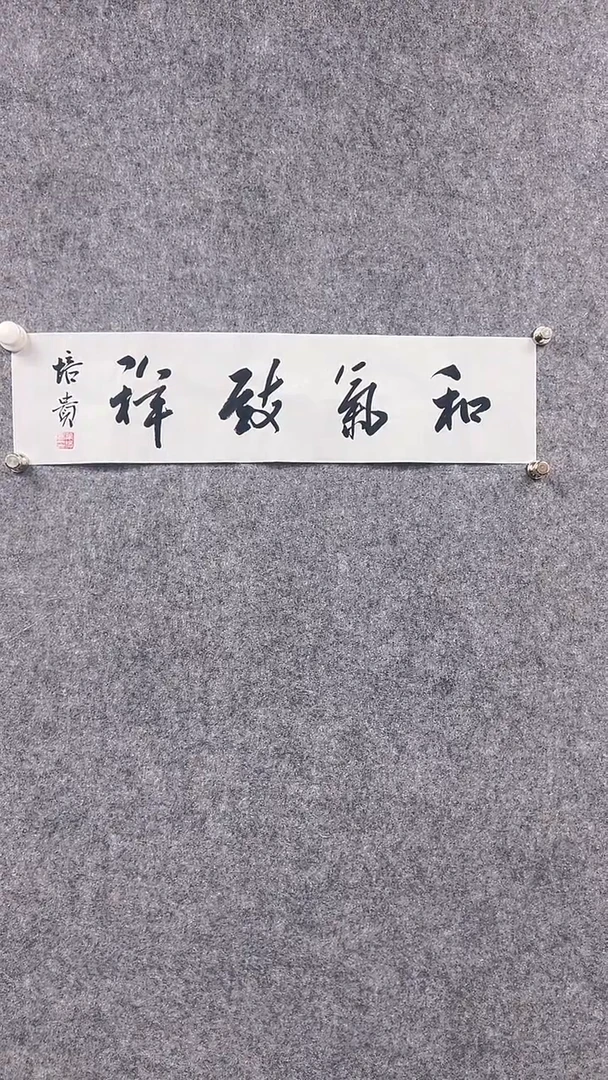 和氣致祥
培貴